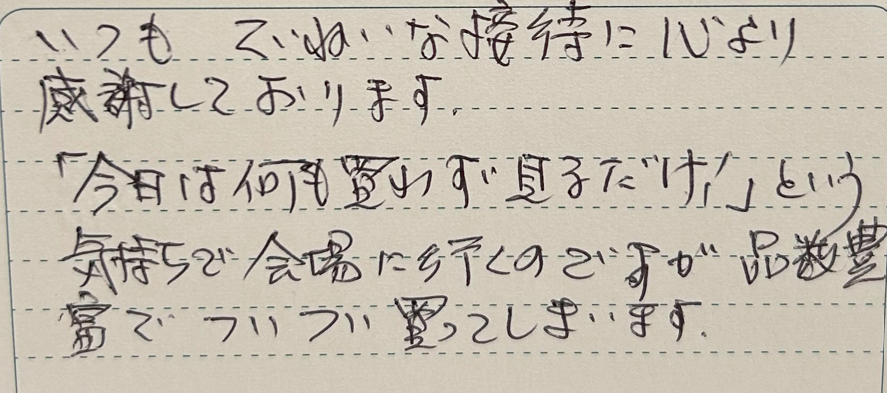 いつも ていねいな接待に心より
感謝しております。
「今日は何も買わず見るだけ!」という
気持ちで会場に行くのですが 品数豊
富で ついつい買ってしまいます。